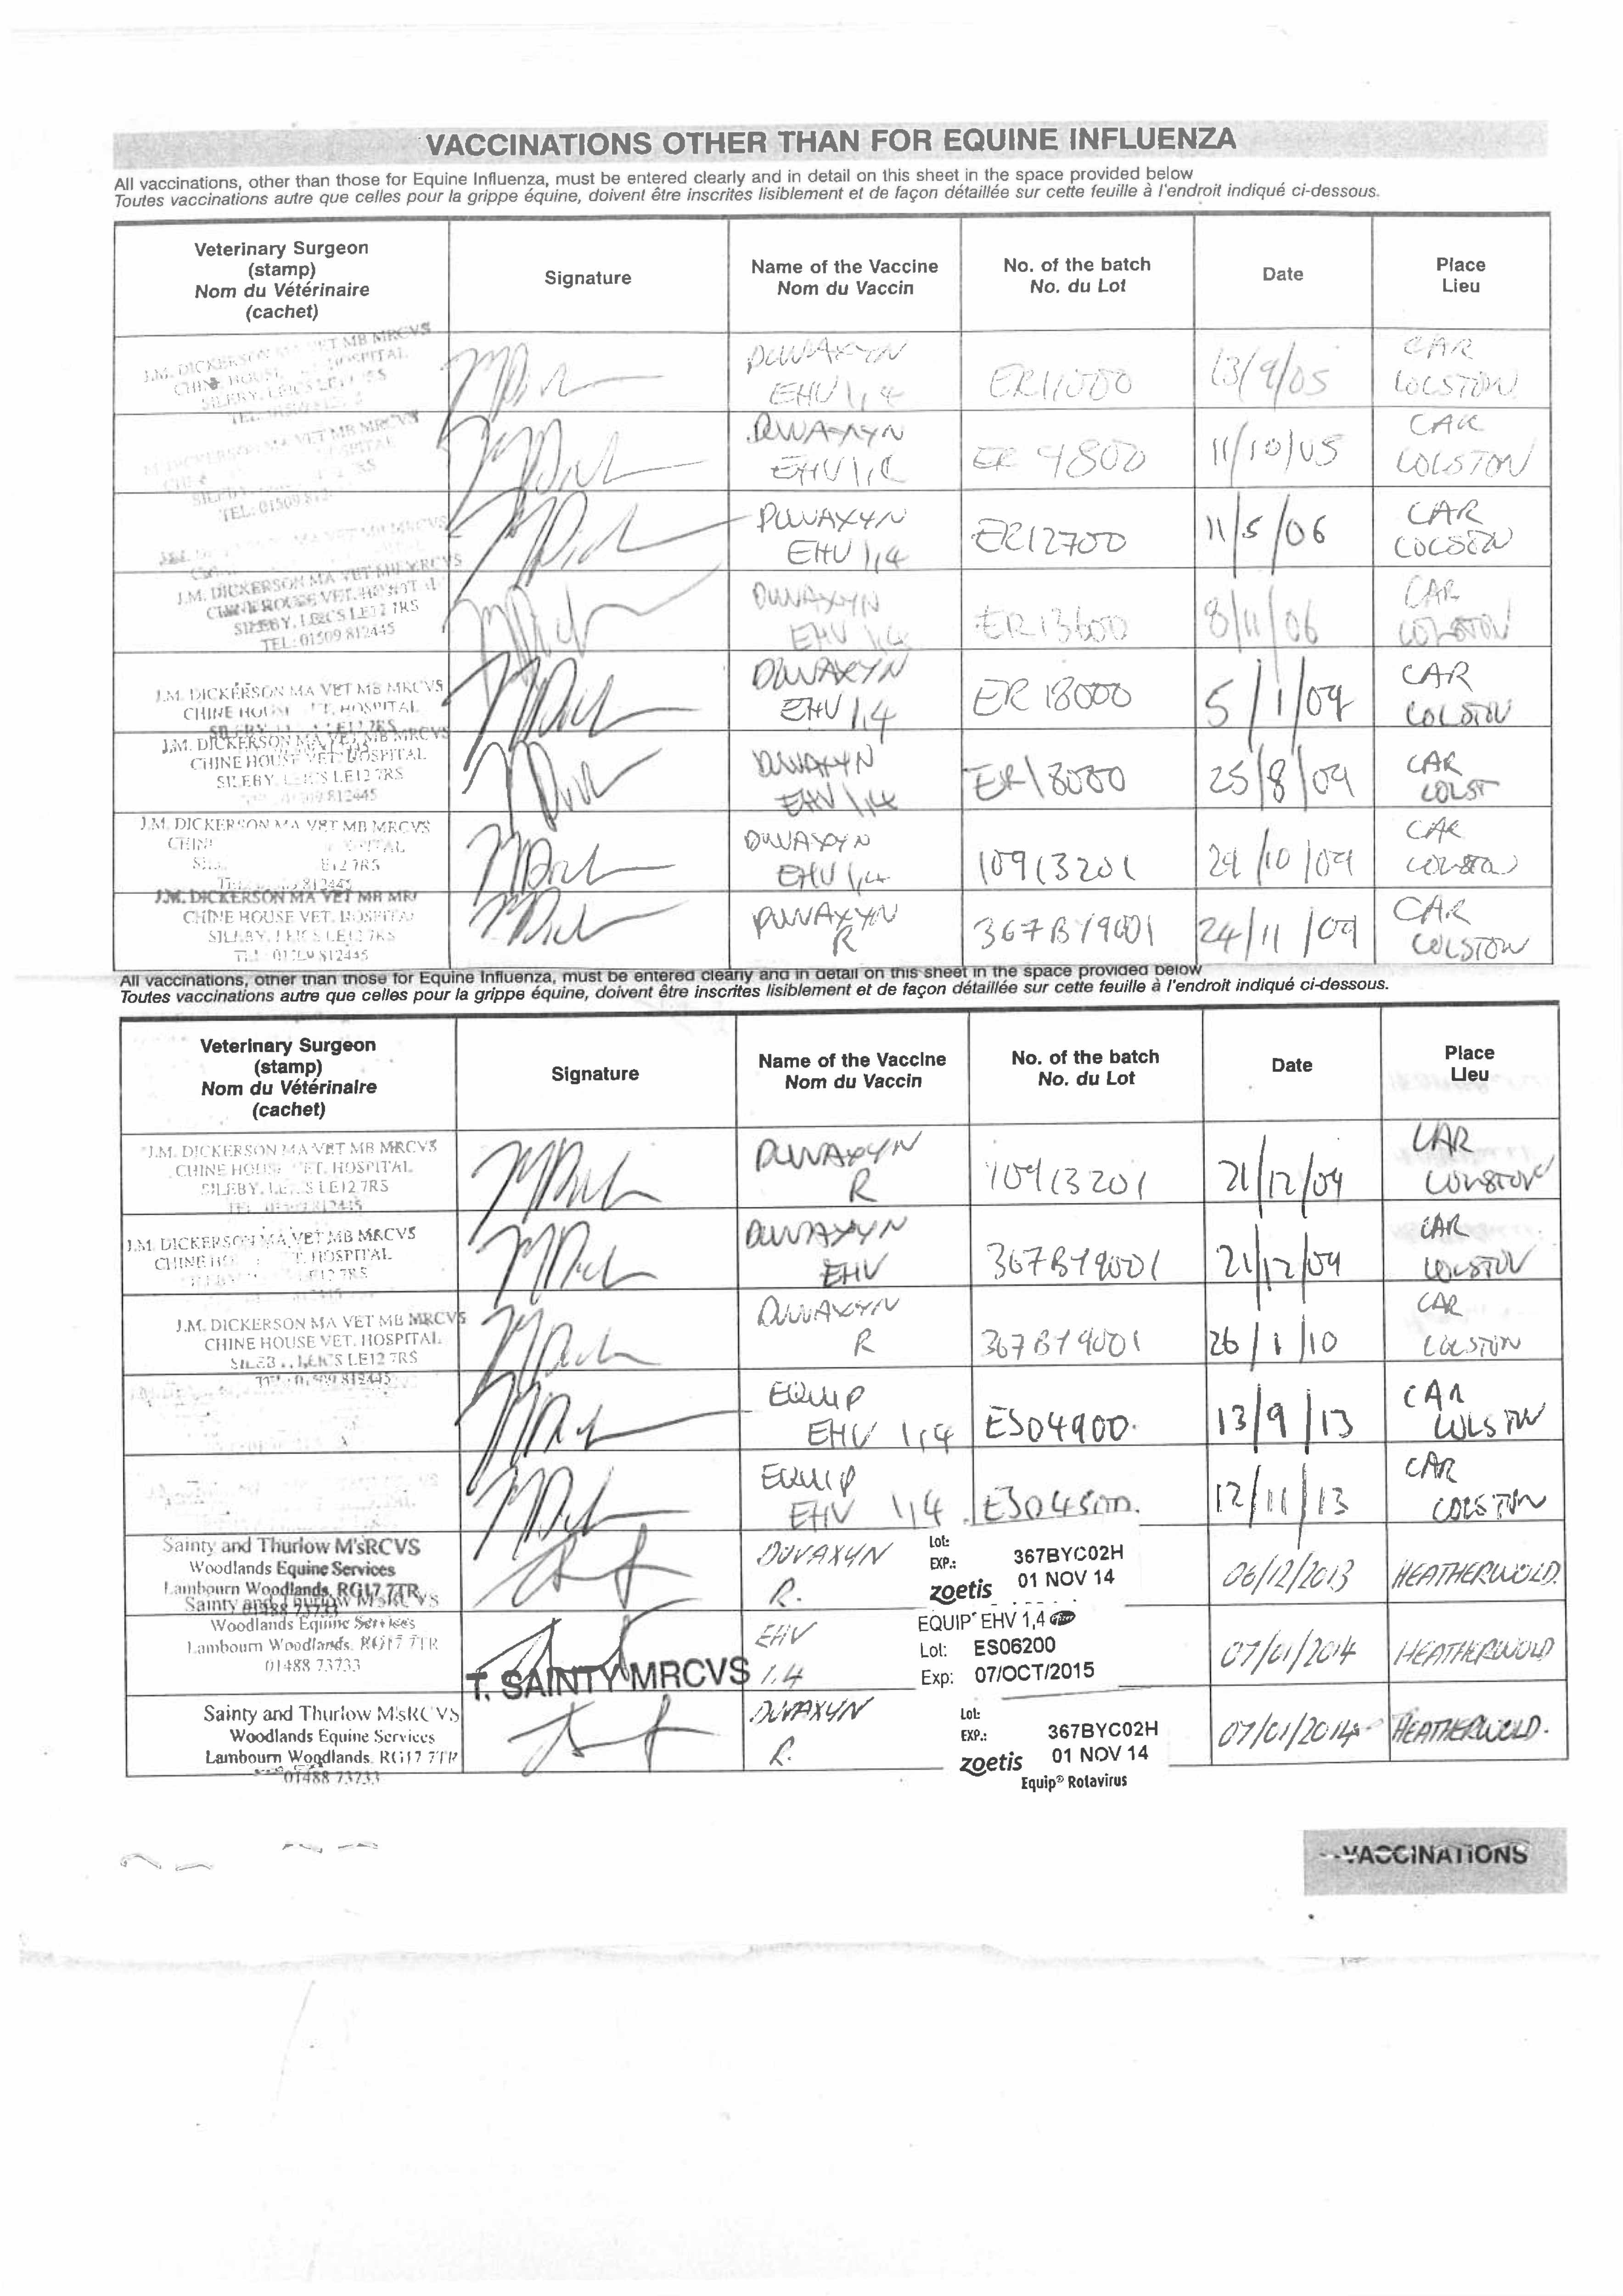 VACCINATIONS OTHER THAN FOR EQUINE INFLUENZA
All vaccinations, other than those for Equine Influenza, must be entered clearly and in detail on this sheet in the space provided below
Toutes vaccinations autre que celles pour la grippe équine, doivent être inscrites lisiblement et de façon détaillée sur cette feuille à l'endroit indiqué ci-dessous.
Veterinary Surgeon
(stamp)
Nom du Vétérinaire
(cachet)
Signature
Name of the Vaccine
Nom du Vaccin
No. of the batch
No. du Lot
Date
Place
Lieu
J.M. DICKERSON VET MB MRCVS
CHINE HOUSE HOSPITAL
SILEBY, LEICS
DUVAXYN
EHV 1,4
ER11000
13/9/05
CAR
COLSTON
VET MB MRCVS
HOSPITAL
TEL: 01509
DUVAXYN
ER 9800
11/10/05
CAR
COLSTON
DUVAXYN
EHV 1,4
ER12700
11/5/06
CAR
COLSTON
J.M. DICKERSON MA VET MB MRCVS
CHINE HOUSE VET. HOSPITAL
SILEBY, LEICS LE12 7RS
TEL: 01509 812445
DUVAXYN
EHV 1,4
ER13600
8/11/06
CAR
COLSTON
J.M. DICKERSON MA VET MB MRCVS
CHINE HOUSE VET. HOSPITAL
DUVAXYN
EHV 1,4
ER 18000
5/1/09
CAR
COLSTON
J.M. DICKERSON MA VET MB MRCVS
CHINE HOUSE VET. HOSPITAL
SILEBY, LEICS LE12 7RS
812445
DUVAXYN
EHV 1,4
ER18000
25/8/09
CAR
COLST
J.M. DICKERSON MA VET MB MRCVS
DUVAXYN
EHV 1,4
10913201
/10/09
CAR
COLSTON
J.M. DICKERSON MA VET MB MR
CHINE HOUSE VET. HOSPITAL
SILEBY, LEICS LE12 7RS
DUVAXYN
R
367BY9001
24/11/09
CAR
COLSTON
All vaccinations, other than those for Equine Influenza, must be entered clearly and in detail on this sheet in the space provided below
Toutes vaccinations autre que celles pour la grippe équine, doivent être inscrites lisiblement et de façon détaillée sur cette feuille à l'endroit indiqué ci-dessous.
Veterinary Surgeon
(stamp)
Nom du Vétérinaire
(cachet)
Signature
Name of the Vaccine
Nom du Vaccin
No. of the batch
No. du Lot
Date
Place
Lieu
J.M. DICKERSON MA VET MB MRCVS
CHINE HOUSE VET. HOSPITAL
SILEBY, LEICS LE12 7RS
DUVAXYN
R
10913201
21/12/09
CAR
COLSTON
J.M. DICKERSON MA VET MB MRCVS
HOSPITAL
DUVAXYN
EHV
367BY9001
21/12/09
CAR
COLSTON
J.M. DICKERSON MA VET MB MRCVS
CHINE HOUSE VET. HOSPITAL
LEICS LE12 7RS
DUVAXYN
R
367BY9001
26/1/10
CAR
COLSTON
EQUIP
EHV 1,4
ES04900.
13/9/13
CAR
COLSTON
EQUIP
EHV 1,4
12/11/13
CAR
COLSTON
Sainty and Thurlow M'sRCVS
Woodlands Equine Services
Lambourn Woodlands, RG17 7TR
DUVAXYN
R.
Lot: 367BYC02H
EXP.: 01 NOV 14
zoetis
06/12/2013
HEATHERWOLD.
Sainty and Thurlow M'sRCVS
Woodlands Equine Services
Lambourn Woodlands, RG17 7TR
01488 73733
T. SAINTY MRCVS
EHV
1.4
EQUIP® EHV 1,4 Pfizer
Lot: ES06200
Exp: 07/OCT/2015
07/01/2014
HEATHERWOLD
Sainty and Thurlow M'sRCVS
Woodlands Equine Services
Lambourn Woodlands, RG17 7TR
01488 73733
DUVAXYN
R.
Lot: 367BYC02H
EXP.: 01 NOV 14
zoetis
Equip® Rotavirus
07/01/2014
HEATHERWOLD.
VACCINATIONS